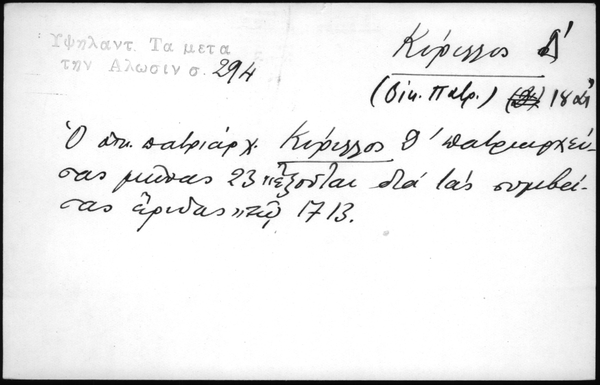 Υψηλαντ. Τα μετα
την Αλωσιν σ. 294
Κύριλλος Δ'
(Οἰκ. Πατρ.) 18 αἰ
Ὁ οἰκ. πατριάρχ. Κύριλλος Δ' πατριαρχεύ-
σας μῆνας 23 "ἐξοῦται διά τάς συμβεί-
σας ἔριδας" τῷ 1713.